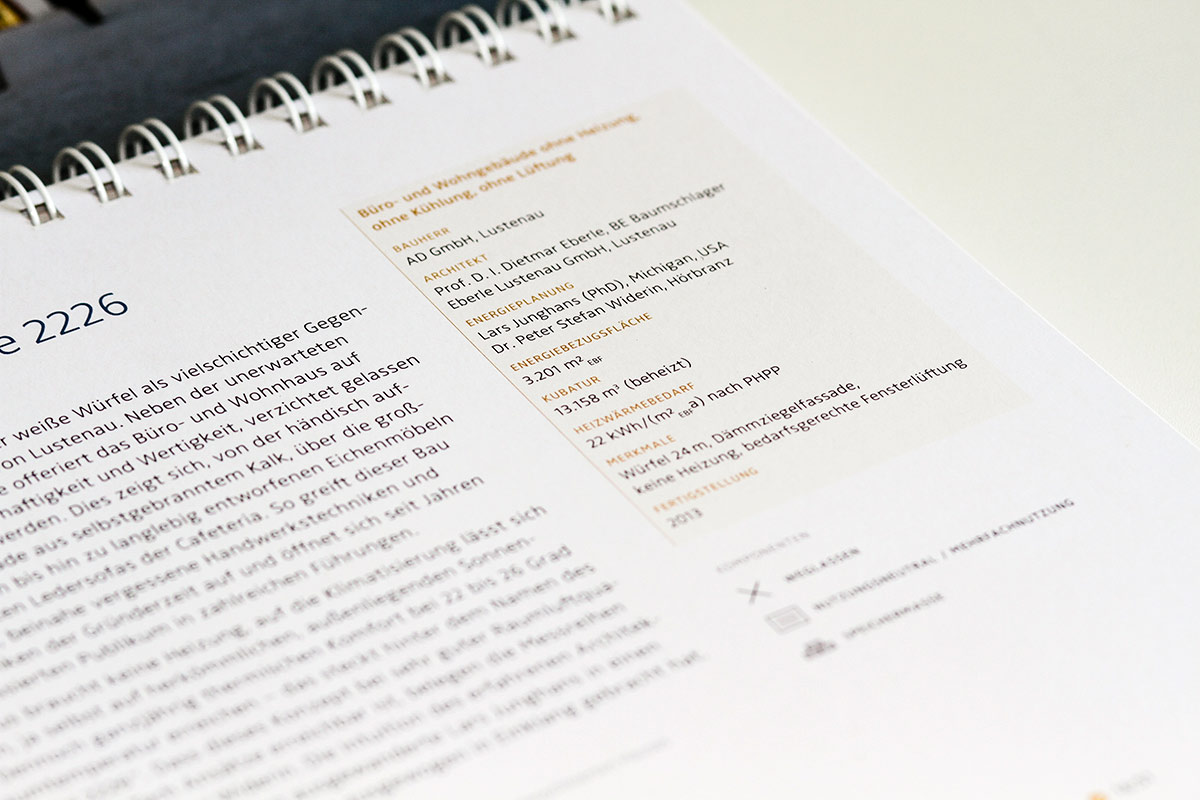 e 2226
r weiße Würfel als vielschichtiger Gegen-
on Lustenau. Neben der unerwarteten
e offeriert das Büro- und Wohnhaus auf
haftigkeit und Wertigkeit, verzichtet gelassen
werden. Dies zeigt sich, von der händisch auf-
de aus selbstgebranntem Kalk, über die groß-
n bis hin zu langlebig entworfenen Eichenmöbeln
en Ledersofas der Cafeteria. So greift dieser Bau
beinahe vergessene Handwerkstechniken und
ken der Gründerzeit auf und öffnet sich seit Jahren
sierten Publikum in zahlreichen Führungen.
n braucht keine Heizung, auf die Klimatisierung lässt sich
, ja selbst auf herkömmlichen, außenliegenden Sonnen-
ennoch ganzjährig thermischen Komfort bei 22 bis 26 Grad
umtemperatur erreichen – das steckt hinter dem Namen des
2226". Dass dieses Konzept bei sehr guter Raumluftqua-
erreichbar ist, belegen die Messreihen
Die Intuition des erfahrenen Architek-
Lars Junghans in einen
in Einklang gebracht hat.
Büro- und Wohngebäude ohne Heizung,
ohne Kühlung, ohne Lüftung
BAUHERR
AD GmbH, Lustenau
ARCHITEKT
Prof. D. I. Dietmar Eberle, BE Baumschlager
Eberle Lustenau GmbH, Lustenau
ENERGIEPLANUNG
Lars Junghans (PhD), Michigan, USA
Dr. Peter Stefan Widerin, Hörbranz
ENERGIEBEZUGSFLÄCHE
3.201 m² EBF
KUBATUR
13.158 m³ (beheizt)
HEIZWÄRMEBEDARF
22 kWh/(m² EBFa) nach PHPP
MERKMALE
Würfel 24 m, Dämmziegelfassade,
keine Heizung, bedarfsgerechte Fensterlüftung
FERTIGSTELLUNG
2013
KOMPONENTEN
WEGLASSEN
NUTZUNGSNEUTRAL / MEHRFACHNUTZUNG
SPEICHERMASSE